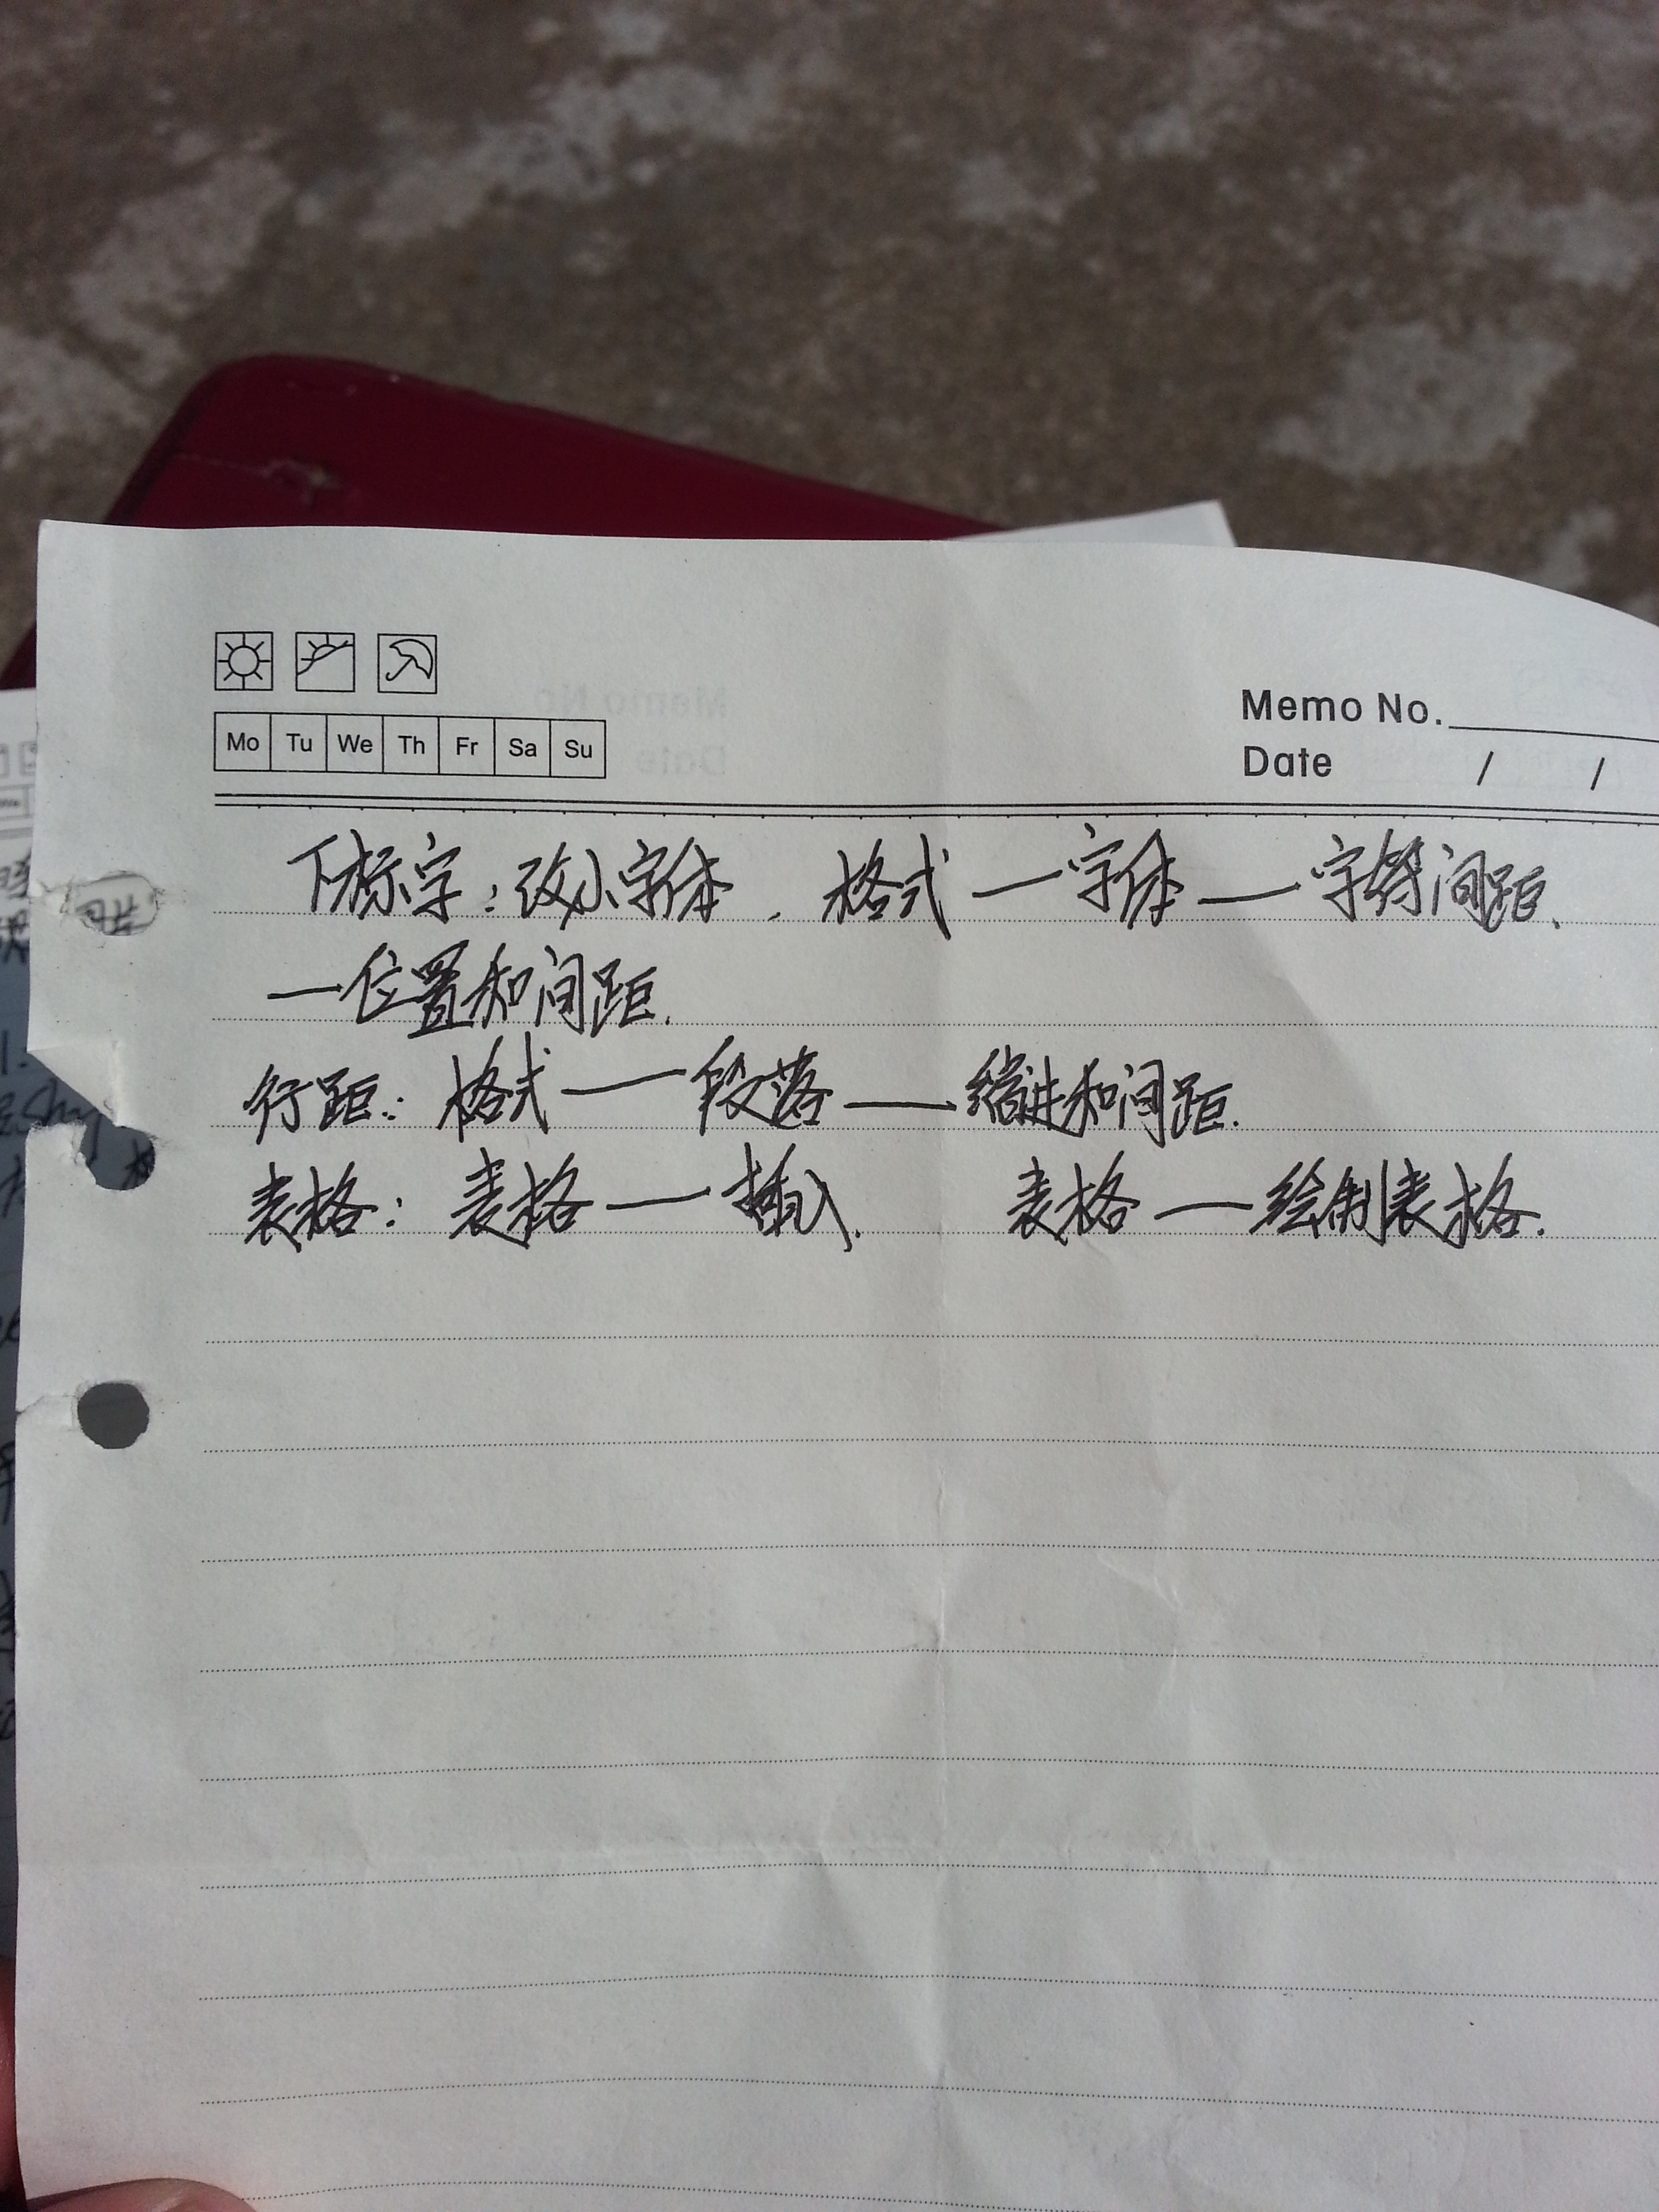 Memo No.
Mo Tu We Th Fr Sa Su
Date / /
下标字：改小字体．格式—字体—字符间距.
—位置和间距.
行距：格式—段落—缩进和间距.
表格：表格—插入. 表格—绘制表格.